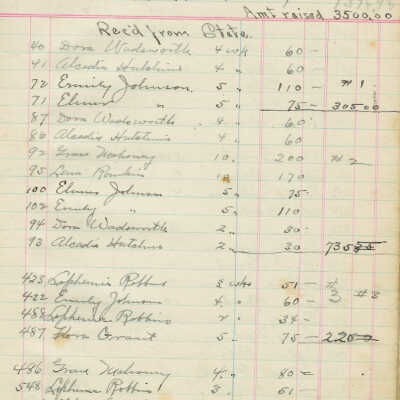 Amt raised 3500.00
Rec'd from State.
40 Dora Wadsworth 4 wk 60 —
41 Alcadia Hutchins 4 " 60
72 Emily Johnson 5 " 110 — #1
71 Elmer " 5 " 75 — 305.00
87 Dora Wadsworth 4 " 60
86 Alcadia Hutchins 4 " 60
92 Grace Nashoway 10 " 200 #2
95 Lena 170
100 Elmer Johnson 5 " 75
102 Emily " 5 " 110
94 Dora Wadsworth 2 " 30
93 Alcadia Hutchins 2 " 30 735
423 Lephemia Robbins 3 wks 51 — #
422 Emily Johnson 4 " 60 — 3 #3
488 Lephemia Robbins 2 " 34 —
487 Flora Grant 5 " 75 — 220
486 Grace Nashoway 4 " 80 —
548 Lephemia Robbins 3 " 51 —